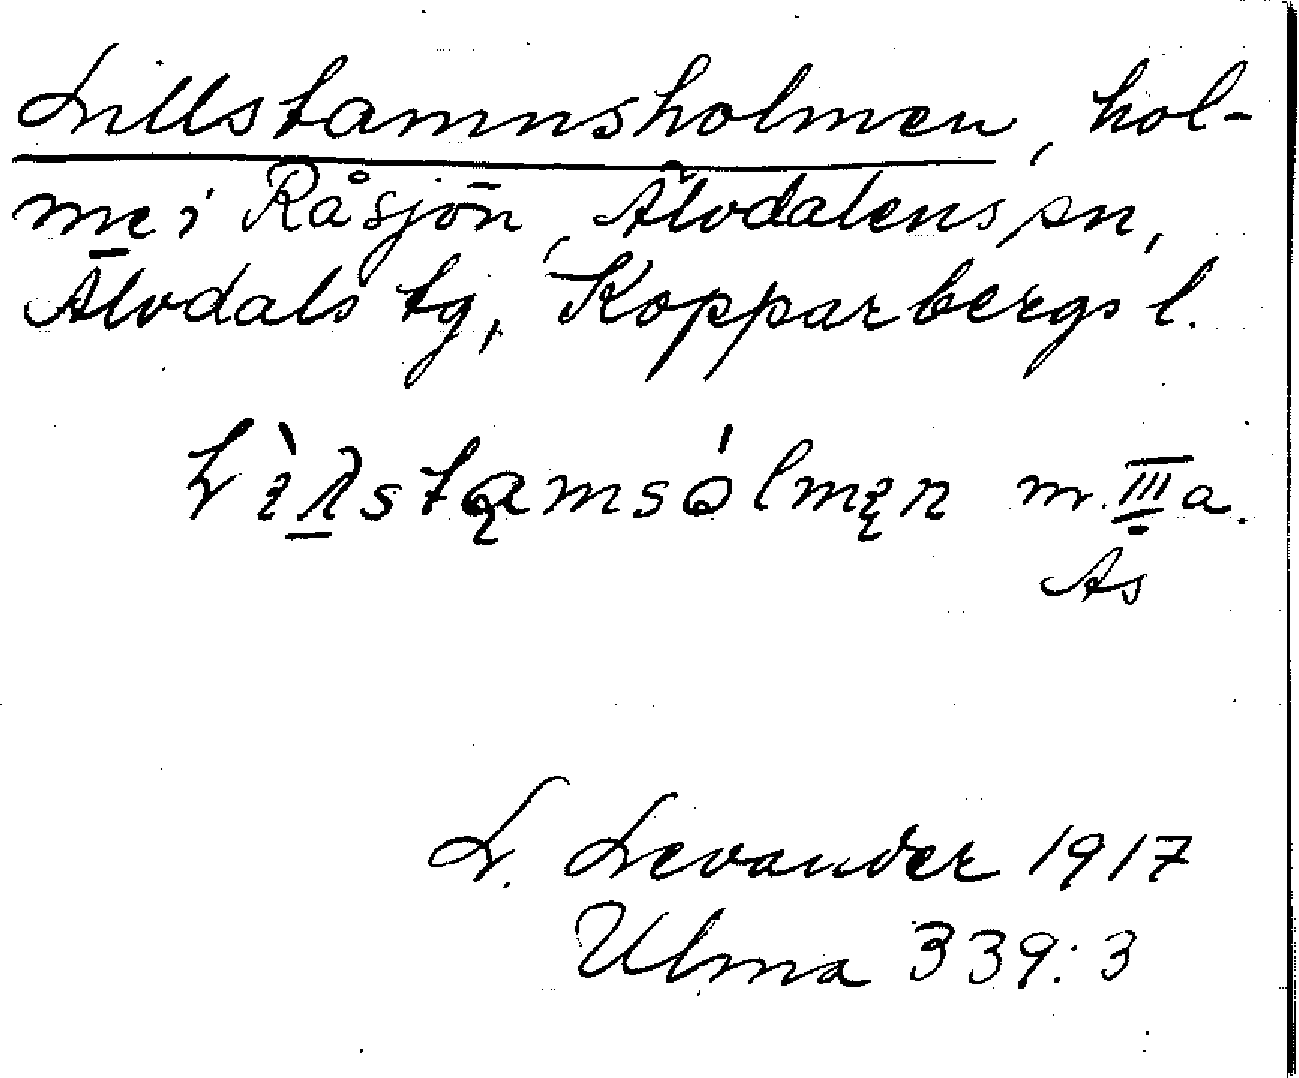 Lillstamnsholmen, hol-
me i Råsjön, Älvdalens sn,
Älvdals tg, Kopparbergs l.
m. III a.
Ås
L. Levander 1917
Ulma 339:3